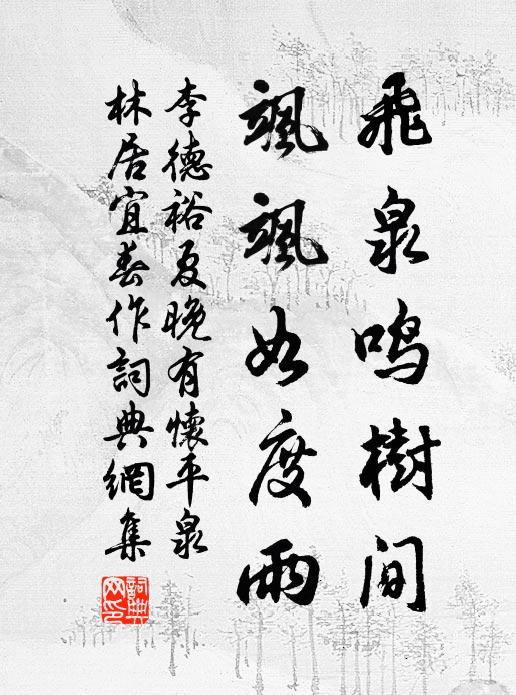 飛泉鳴樹間
颯颯如度雨
李德裕夏晚有懷平泉
林居宜春作詞典網集
詞典